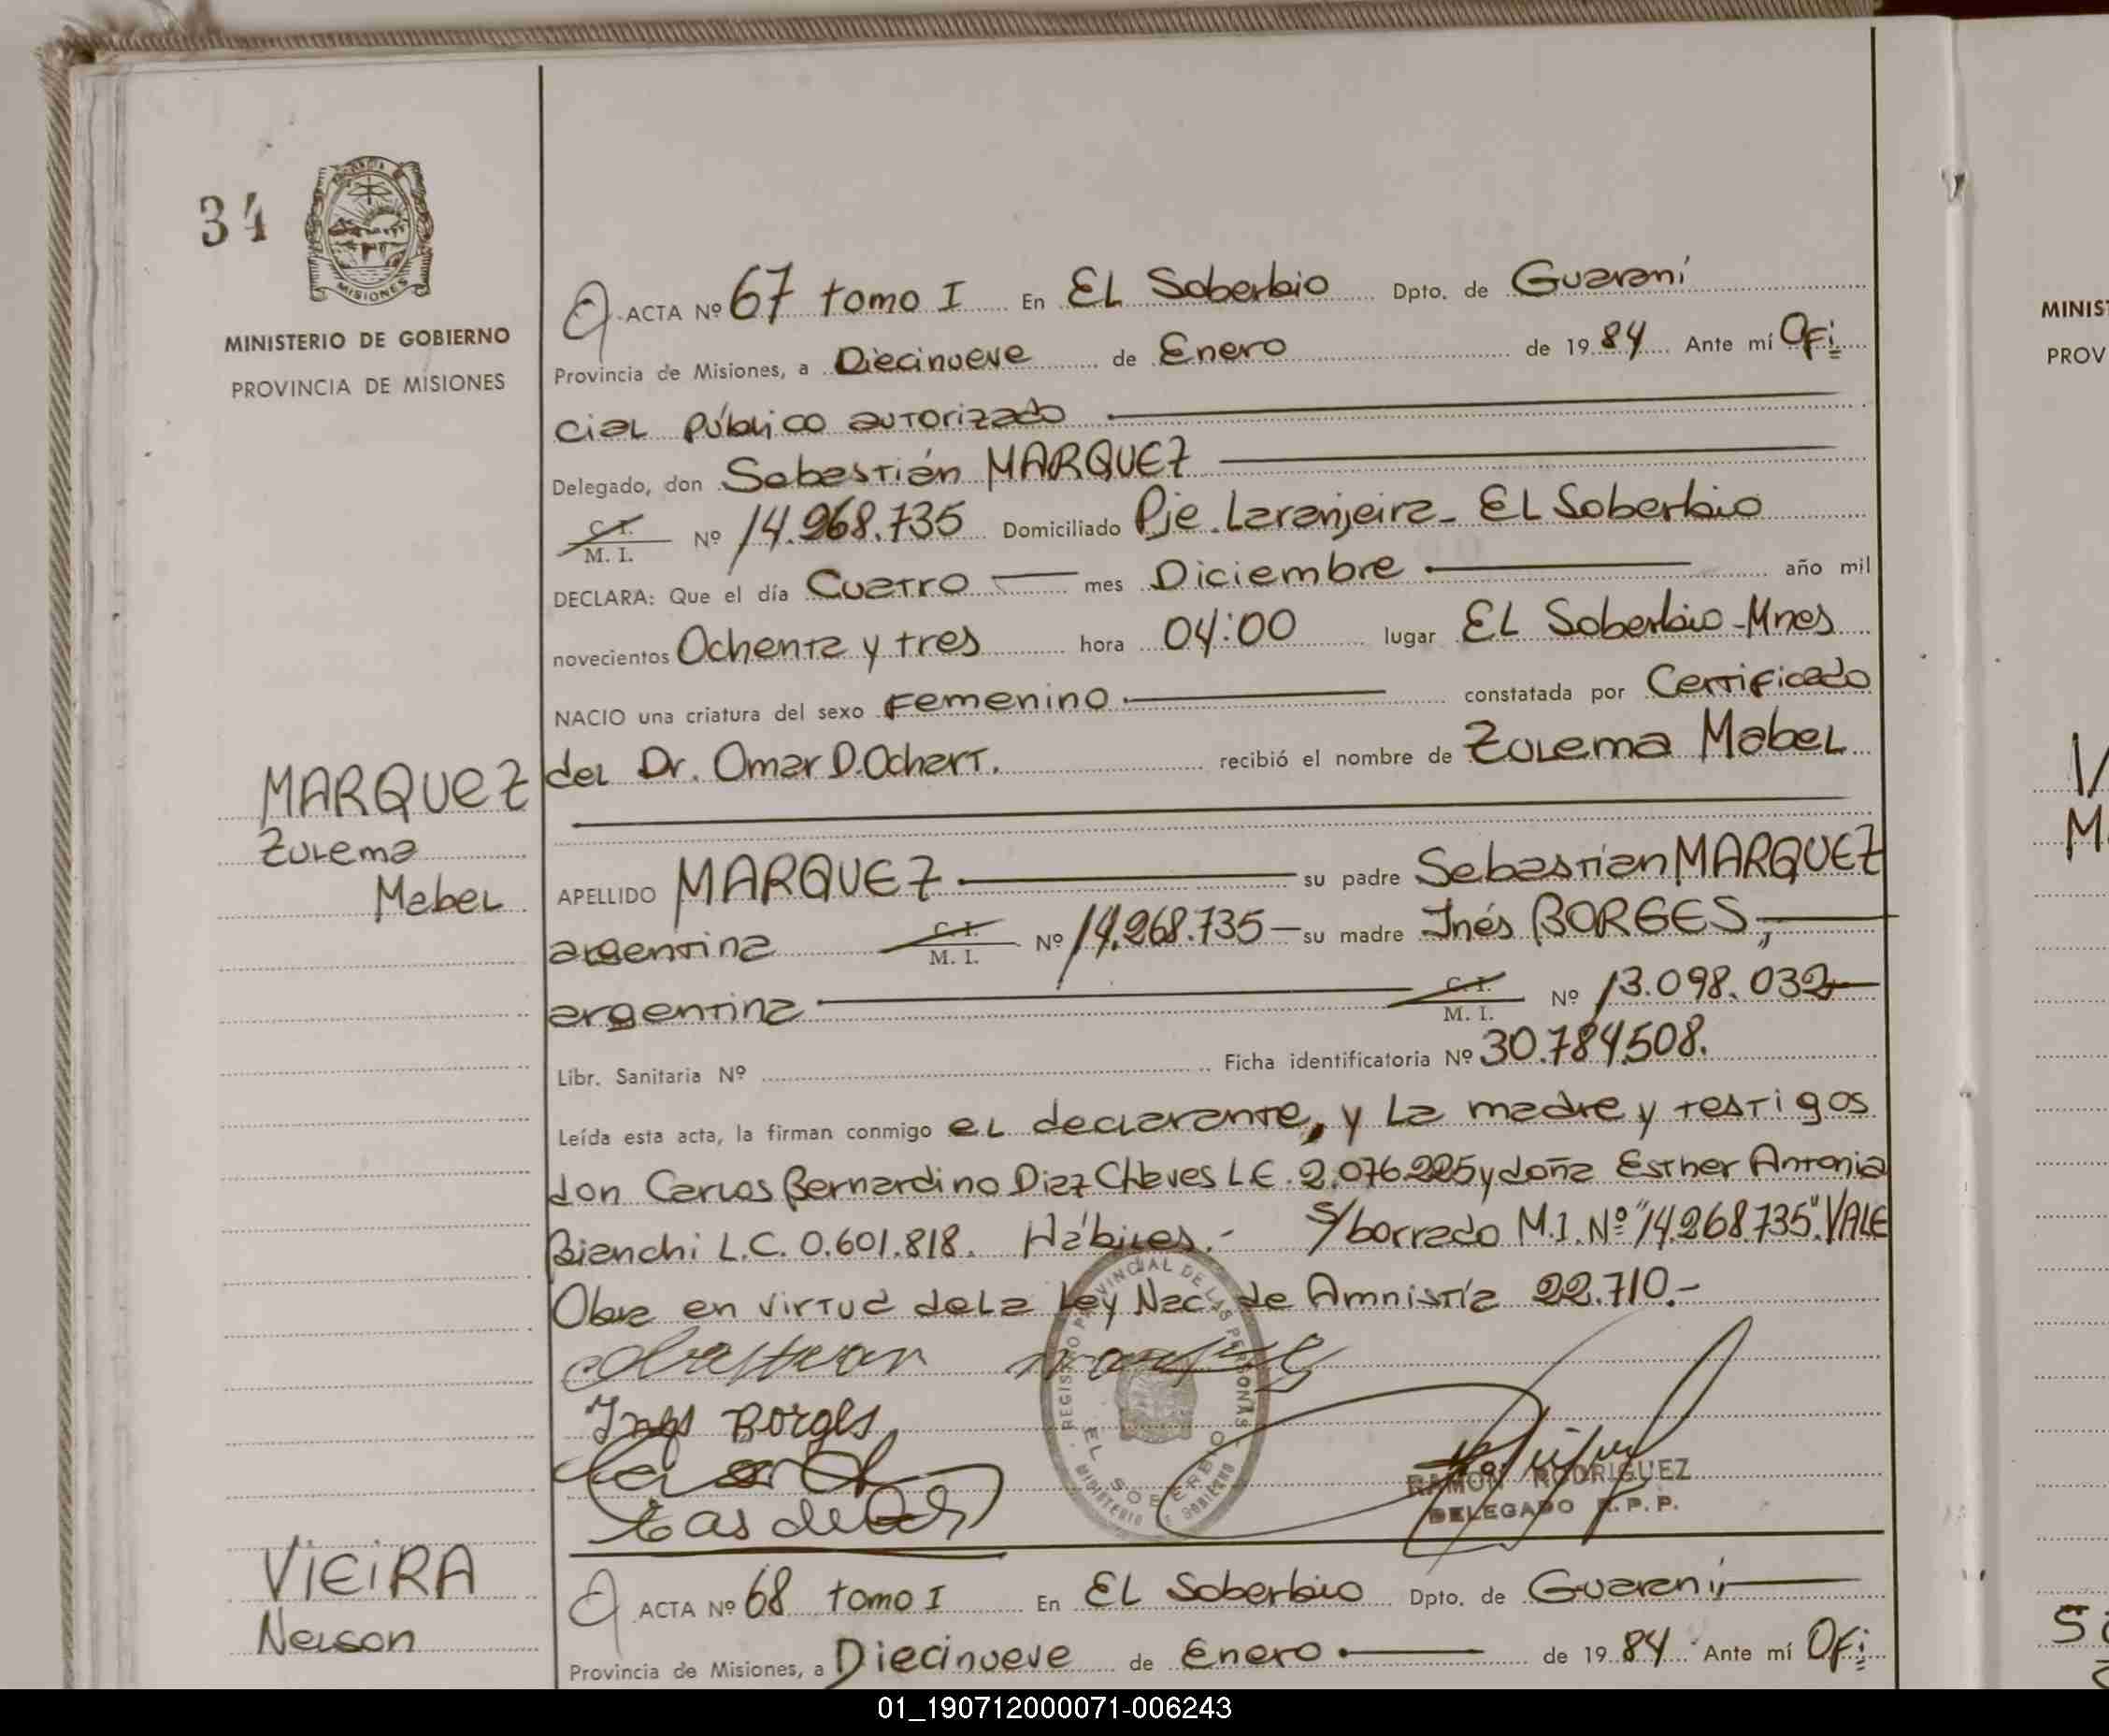 34
MISIONES
MINISTERIO DE GOBIERNO
PROVINCIA DE MISIONES
ACTA Nº 67 tomo I En EL Soberbio Dpto. de Guaraní
Provincia de Misiones, a Diecinueve de Enero de 1984 Ante mí Ofi
cial Público autorizado
Delegado, don Sebastián MARQUEZ
C. I. M. I. Nº 14.268.735 Domiciliado Pje. Laranjeira - EL Soberbio
DECLARA: Que el día Cuatro mes Diciembre año mil
novecientos Ochenta y tres hora 04:00 lugar EL Soberbio - Mnes
NACIO una criatura del sexo Femenino constatada por Certificado
del Dr. Omar D. Ochart. recibió el nombre de Zulema Mabel
MARQUEZ
Zulema
Mabel
APELLIDO MARQUEZ su padre Sebastian MARQUEZ
argentina C. I. M. I. Nº 14.268.735 su madre Inés BORGES,
argentina C. I. M. I. Nº 13.098.032
Libr. Sanitaria Nº Ficha identificatoria Nº 30.784.508.
Leída esta acta, la firman conmigo el declarante, y la madre y testigos
don Carlos Bernardino Diaz Chaves L.E. 2.076.225 y doña Esther Antonia
Bianchi L.C. 0.601.818. Hábiles.- S/borrado M.I. Nº "14.268.735". VALE
Obra en virtud de la Ley Nac. de Amnistía 22.710.-
Sebastian Marques
Ines Borges
REGISTRO PROVINCIAL DE LAS PERSONAS
EL SOBERBIO
MINISTERIO DE GOBIERNO
RAMON RODRIGUEZ
DELEGADO R.P.P.
VIEIRA
Nelson
ACTA Nº 68 tomo I En EL Soberbio Dpto. de Guaraní
Provincia de Misiones, a Diecinueve de Enero de 1984 Ante mí Ofi
MINIST
PROV
01_190712000071-006243